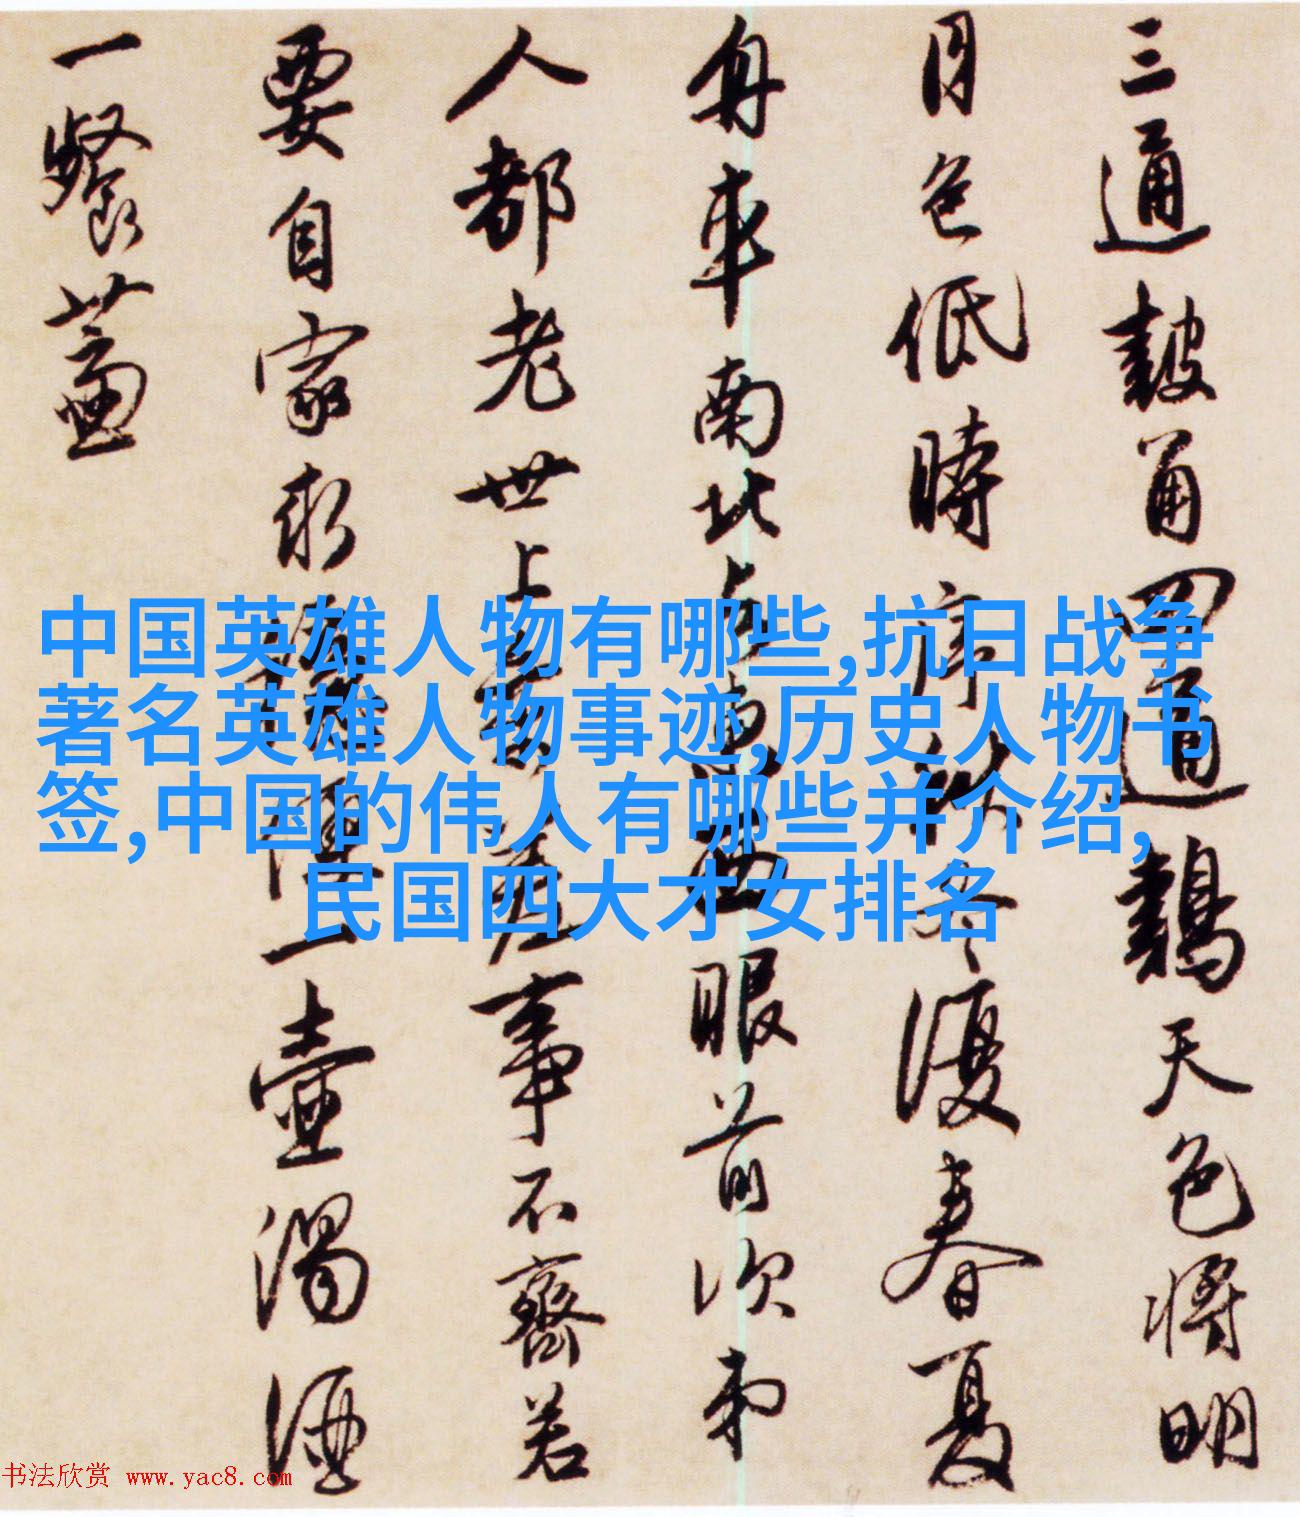 三通鼓角四通鷄天色將明
月色低時序秋冬復春夏
舟車南北与東西眼前次弟
人都老世上參差事不齊若
要自家求穩便一壺濁酒
一餐虀
中国英雄人物有哪些,抗日战争
著名英雄人物事迹,历史人物书
签,中国的伟人有哪些并介绍,
民国四大才女排名
书法欣赏 www.yac8.com